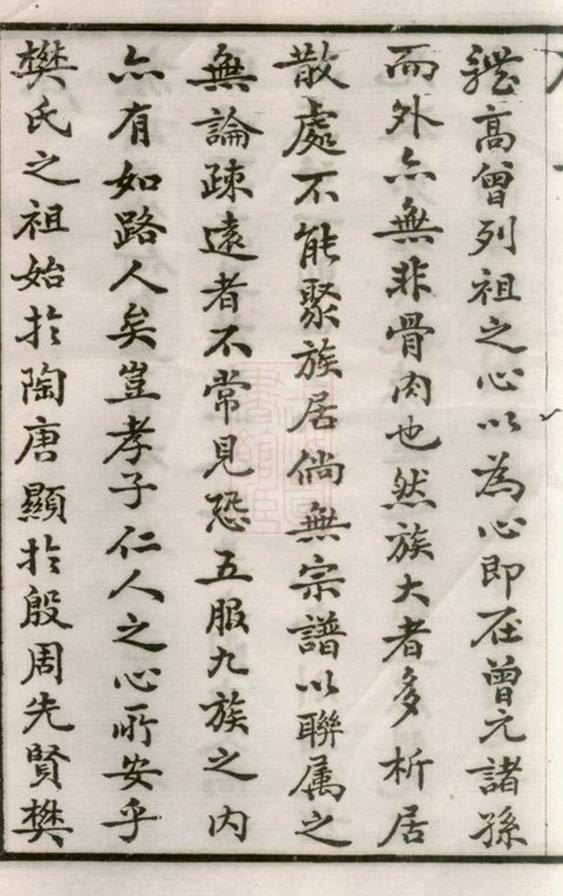 體高曾列祖之心以為心即在曾元諸孫
而外亦無非骨肉也然族大者多析居
散處不能聚族居倘無宗譜以聯属之
無論疎遠者不常見恐五服九族之内
亦有如路人矣豈孝子仁人之心所安乎
樊氏之祖始於陶唐顯於殷周先賢樊